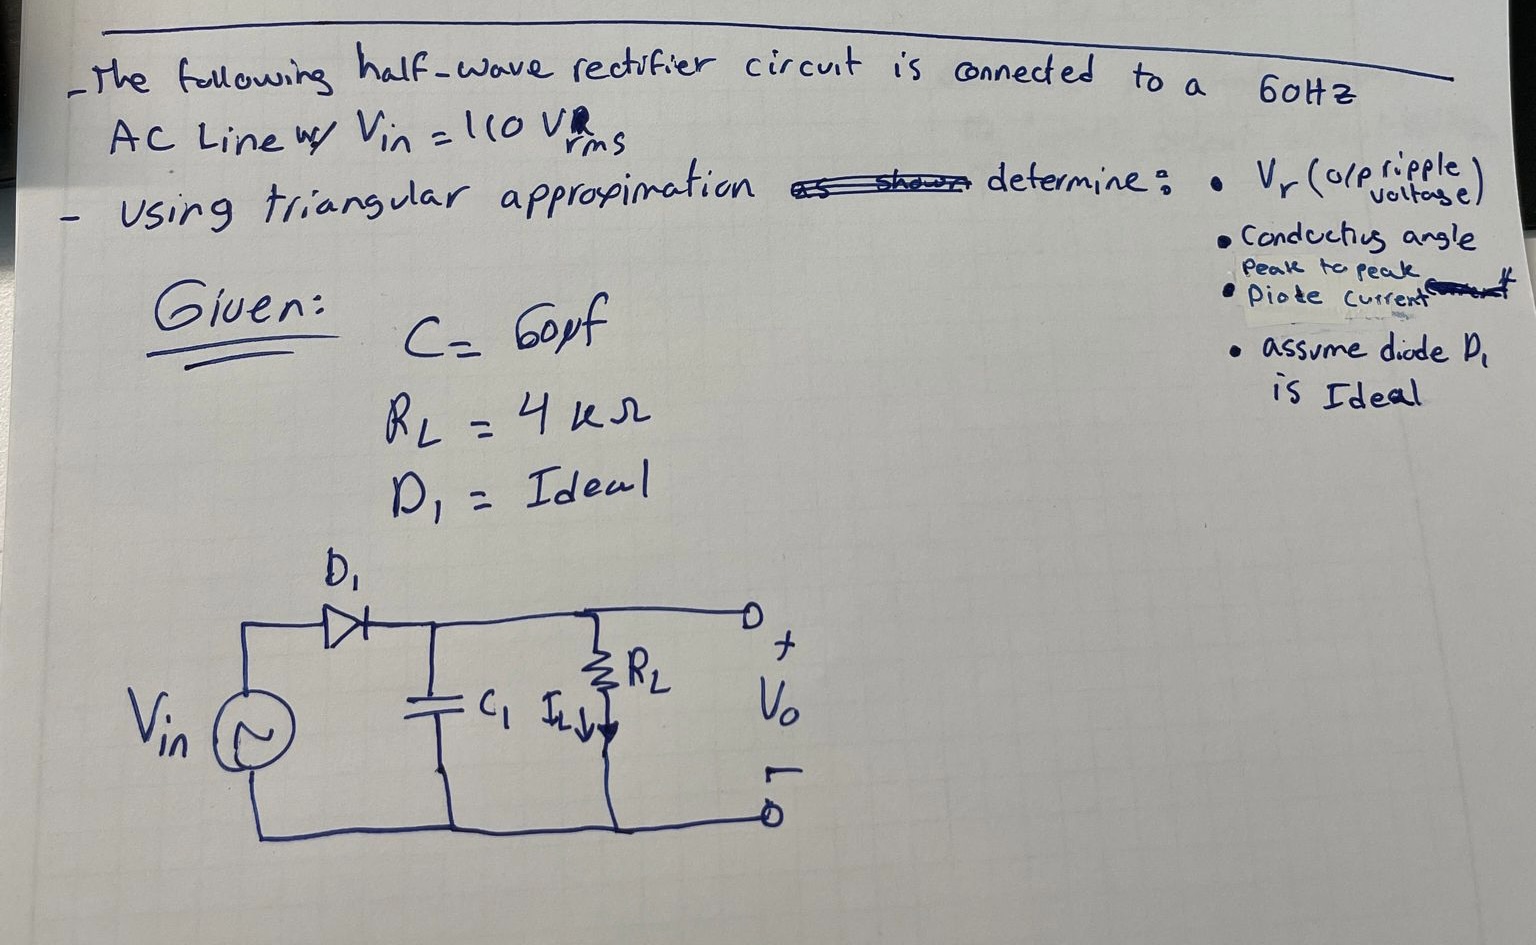 - The following half-wave rectifier circuit is connected to a 60HZ
AC Line w/ Vin = 110 Vrms
- Using triangular approximation as shown determine: • Vr (o/p ripple voltage)
• Conductius angle
Peak to peak
• Diode current
• assume diode D1
is Ideal
Given:
C = 60µf
RL = 4 kΩ
D1 = Ideal
D1
Vin
C1
IL↓
RL
+
Vo
-